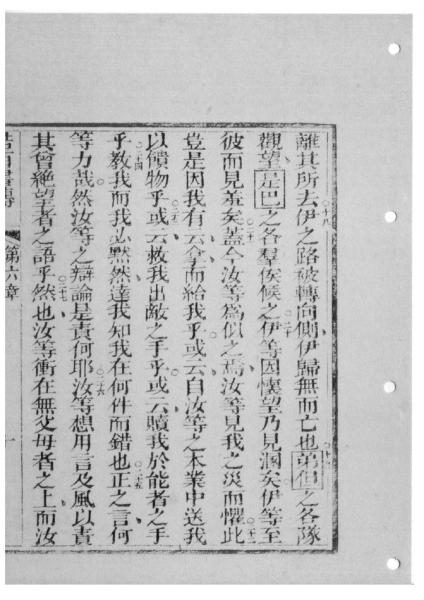 離其所去伊之路被轉向側伊歸無而亡也弟但之各隊
觀望是巴之各羣俟候之伊等因懷望乃見溷矣伊等至
彼而見羞矣蓋今汝等為似之焉汝等見我之災而懼此
豈是因我有云拿而給我乎或云自汝等之本業中送我
以饋物乎或云救我出敵之手乎或云贖我於能者之手
乎教我而我必默然達我知我在何件而錯也正之言何
等力哉然汝等之辯論是責何耶汝等想用言及風以責
其曾絕望者之語乎然也汝等衝在無父母者之上而汝
第六章